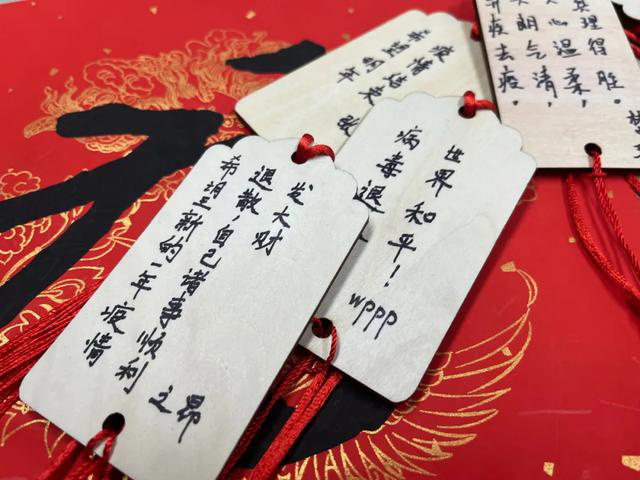 希望新的一年疫情
退散,自己诸事顺利
发大财
之昂
病毒退
世界和平!
wppp
疫情结束
理得胜。
心温柔,
朗气清,
疫去疫。